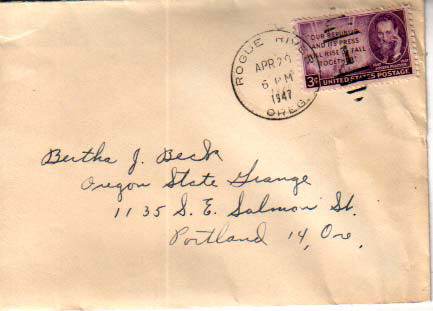 ROGUE RIVER
APR 29
6 PM
1947
OREG.
"OUR REPUBLIC
AND ITS PRESS
WILL RISE OR FALL
TOGETHER"
JOSEPH PULITZER
3¢ UNITED STATES POSTAGE
Bertha J. Beck
Oregon State Grange
1135 S. E. Salmon St.
Portland 14, Ore.